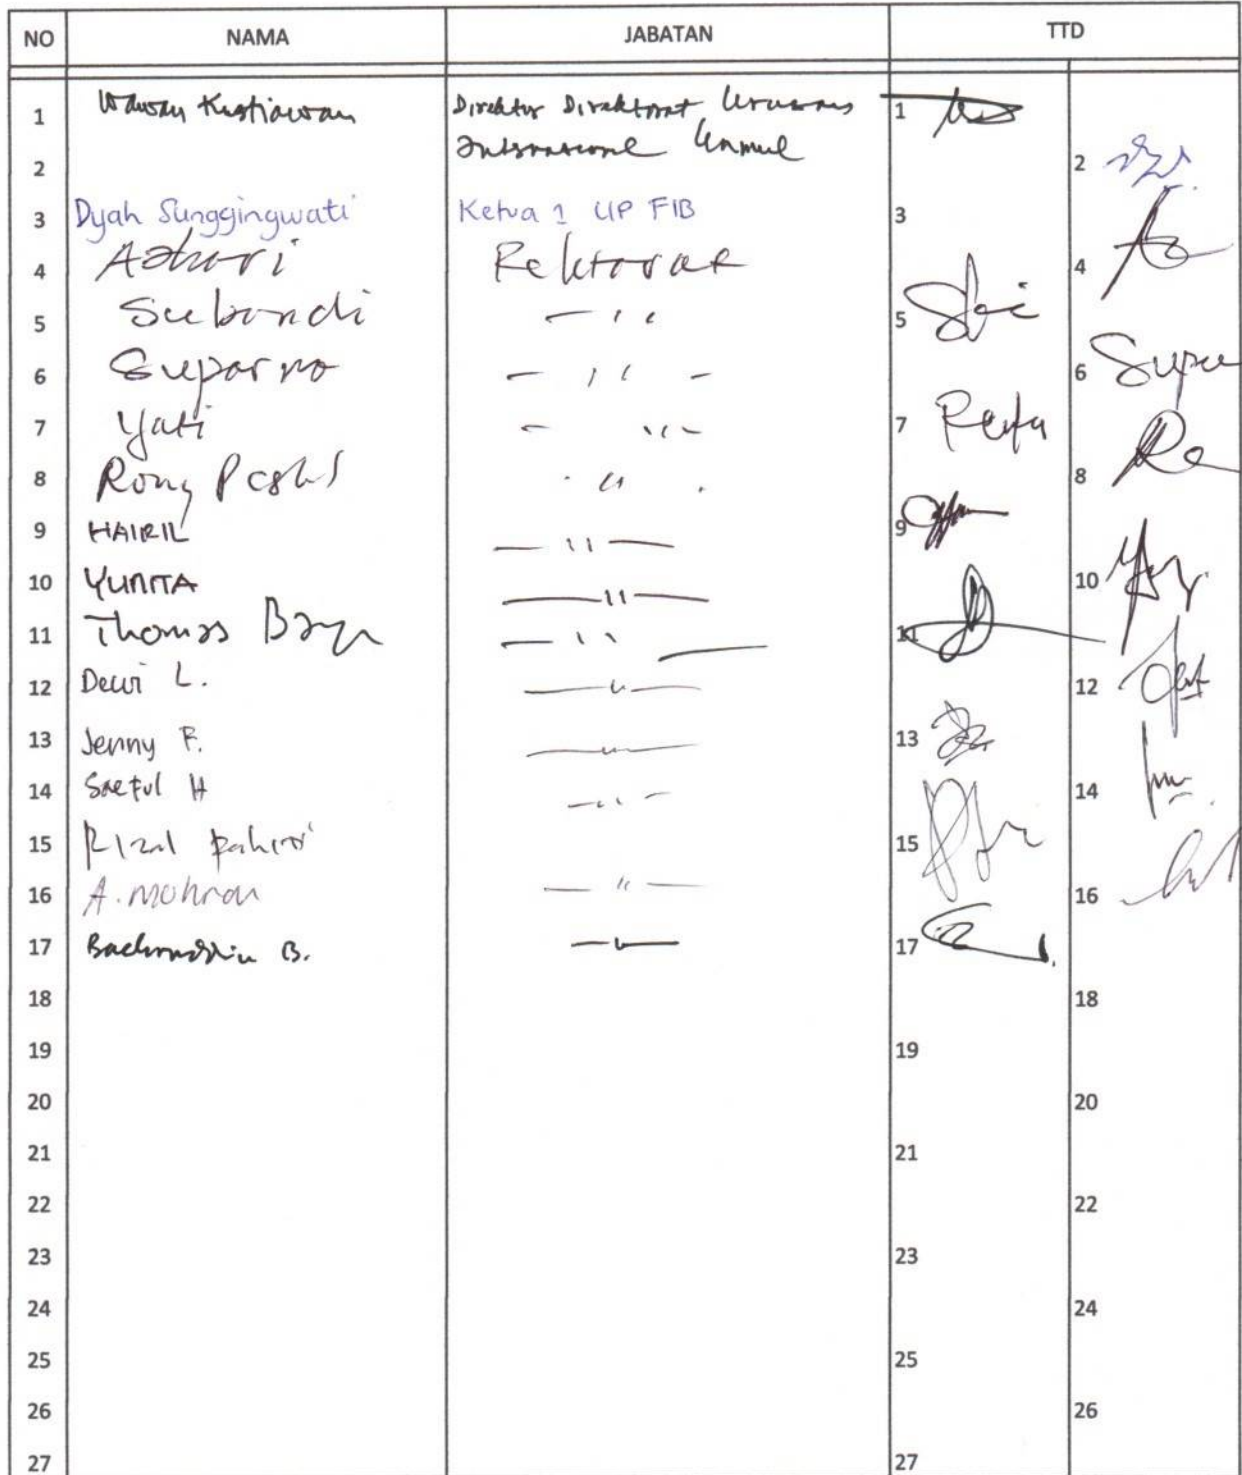 NO NAMA JABATAN TTD
1 Wawan Kustiawan Direktur Direktorat Urusan 1
Internasional Unmul
2 2
3 Dyah Sunggingwati Ketua 1 UP FIB 3
4 Azhari Rektorat 4
5 Subandi — " 5
6 Suparno — " — 6 Supa
7 Yati — " — 7
8 Rony " 8
9 HAIRIL — " — 9
10 YUNITA — " — 10
11 Thomas — " — 11
12 Dewi L. — " — 12
13 Jenny F. — " — 13
14 Saeful H — " — 14
15 Rizal 15
16 A. — " — 16
17 B. — " — 17
18 18
19 19
20 20
21 21
22 22
23 23
24 24
25 25
26 26
27 27